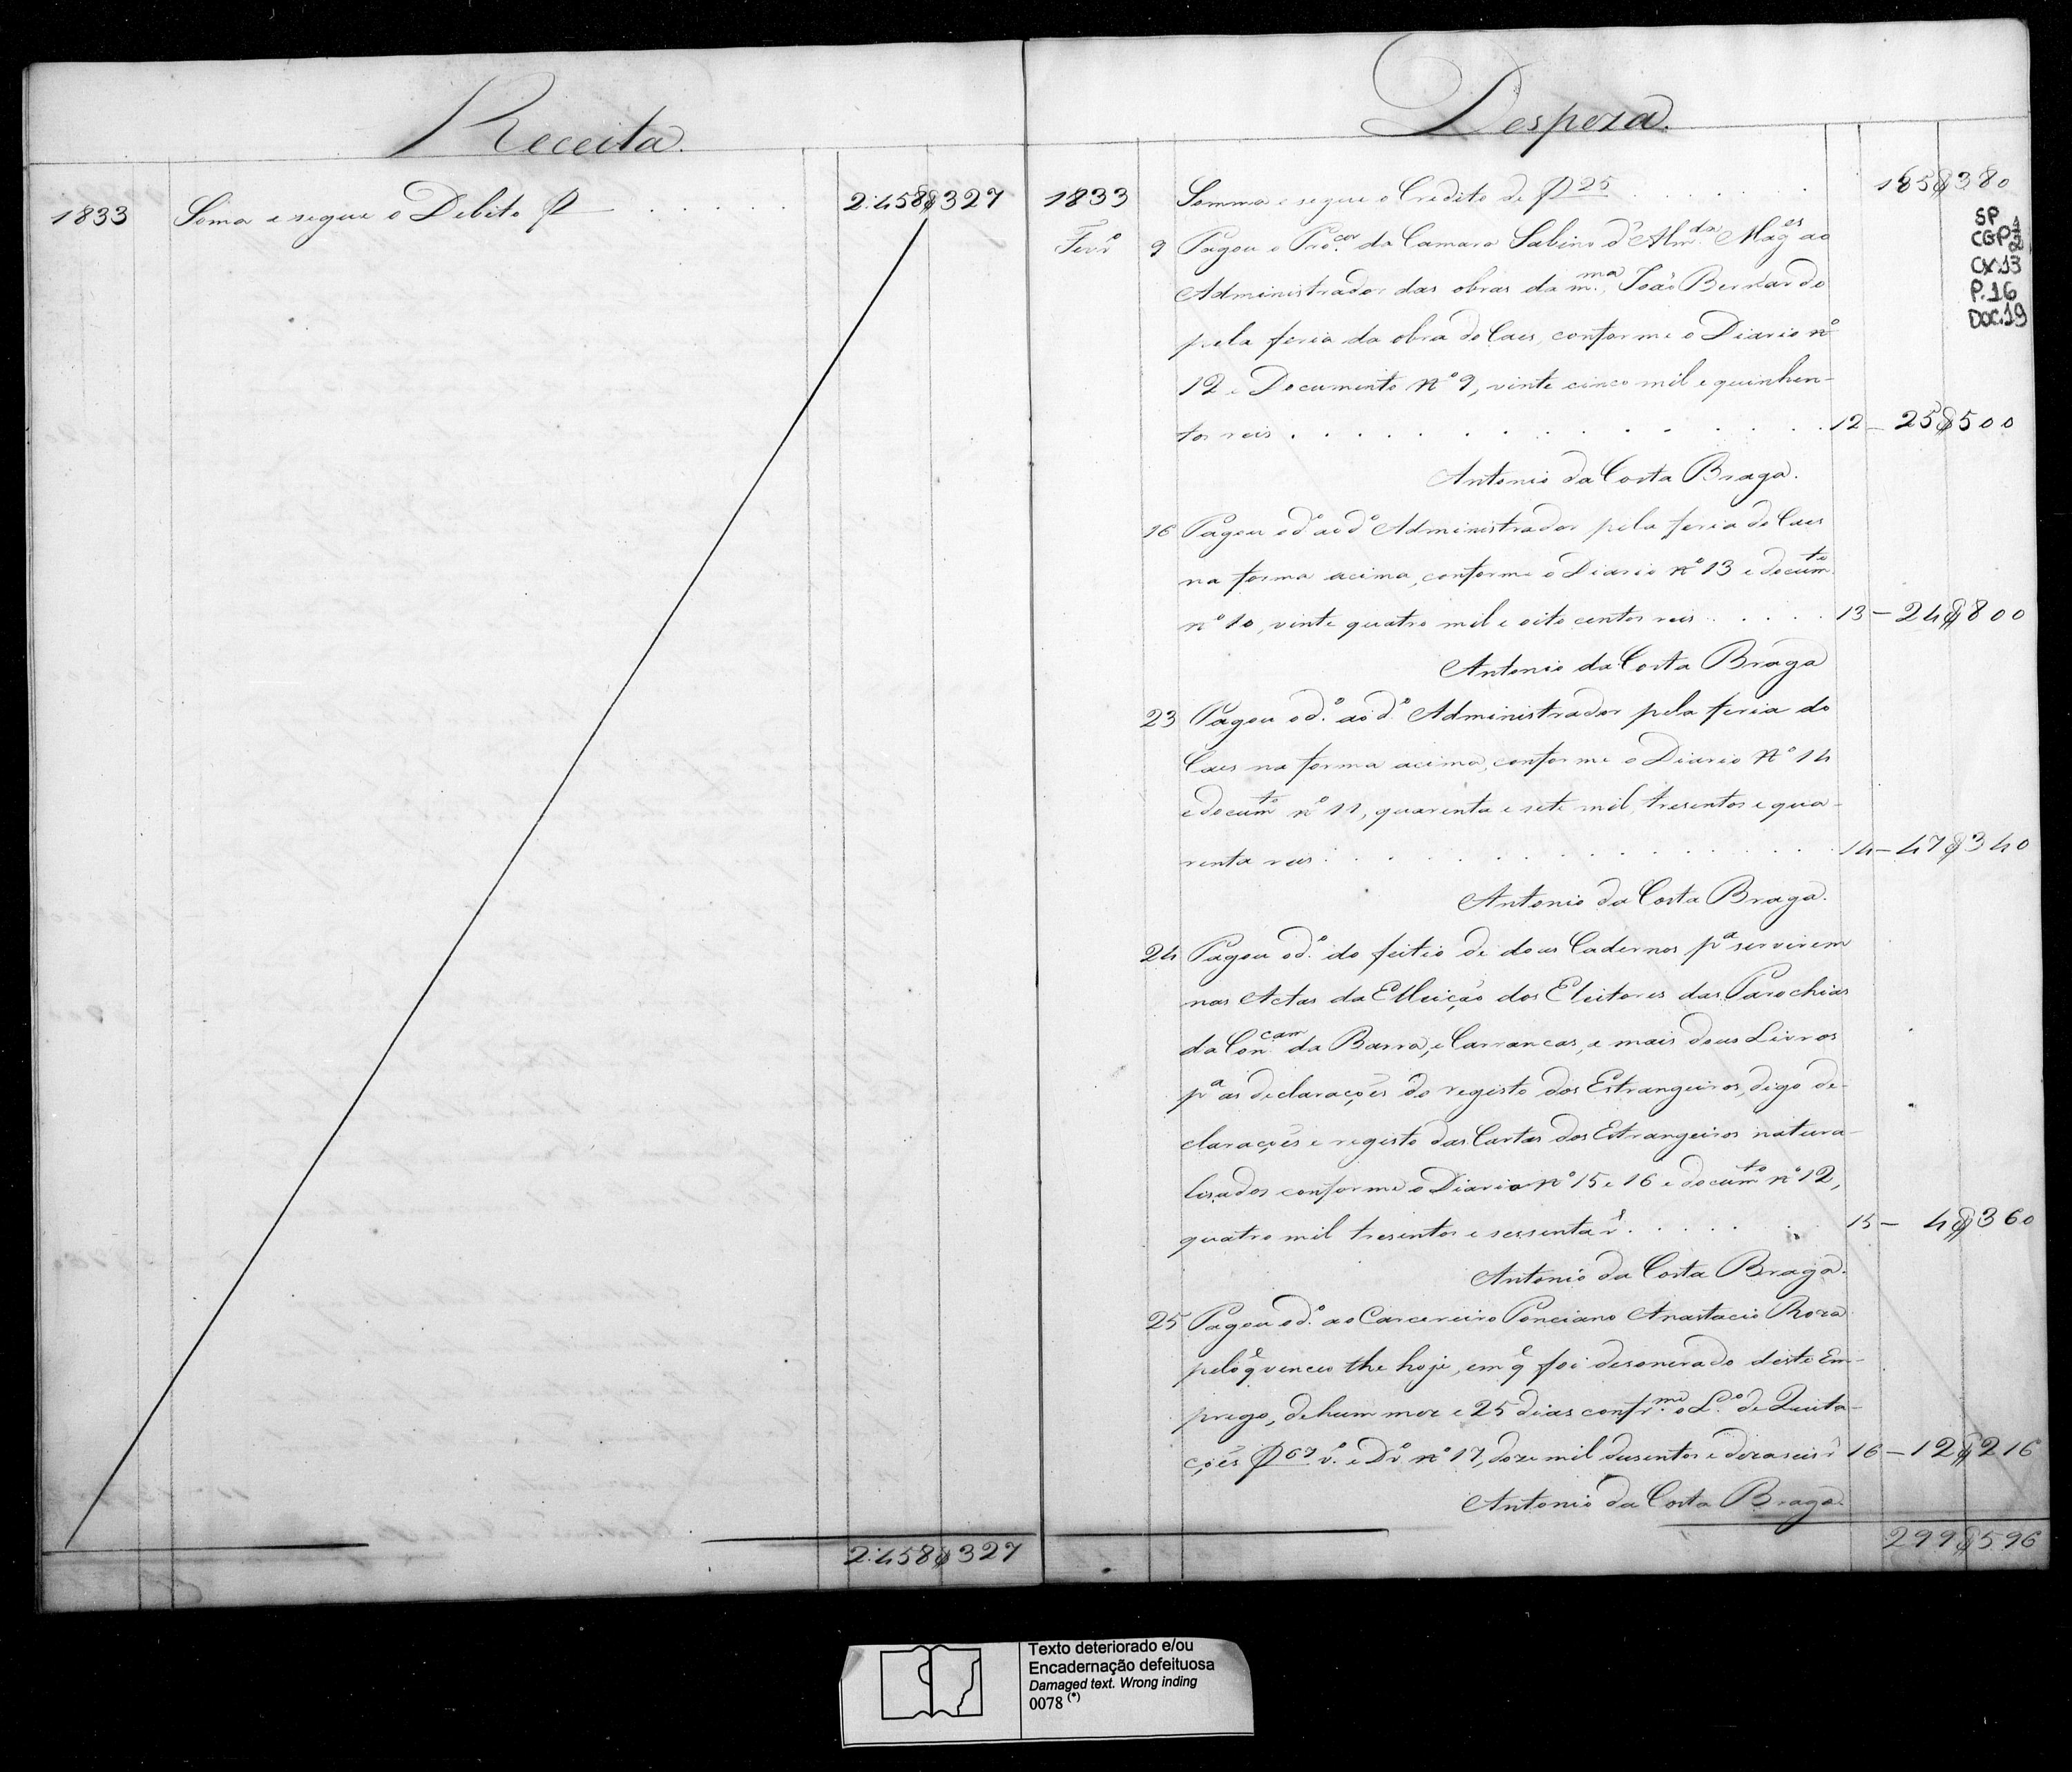 Receita.
1833 Soma e segue o Debito . . . . . 2:458$327
2:458$327
Despeza.
1833 Somma e segue o Credito de 25 . . . . 185$380
SP
CGP12
CX.13
P.16
DOC.19
Fevr.º 9 Pagou o Proc.cor da Camara Sabino d'Alm.da Mag.es ao
Administrador das obras da m.ma, João Bernardo
pela feria da obra do Caes, conforme o Diario nº
12 e Documento Nº 9, vinte cinco mil e quinhen-
tos reis . . . . . . . . . . . . . . 12 - 25$500
Antonio da Costa Braga.
16 Pagou o d.º ao d.º Administrador pela feria do Caes
na forma acima, conforme o Diario nº 13 e docum.to
nº 10, vinte quatro mil e oito centos reis . . . . . 13 - 24$800
Antonio da Costa Braga
23 Pagou o d.º ao d.º Administrador pela feria do
Caes na forma acima, conforme o Diario Nº 14
e docum.to nº 11, quarenta e sete mil, tresentos e qua-
renta reis . . . . . . . . . . . . . 14 - 47$340
Antonio da Costa Braga.
24 Pagou o d.º do feitio de dous Cadernos p.a servirem
nas Actas da Elleição dos Eleitores das Parochias
da Con.cam da Barra, e Carrancas, e mais dous Livros
p.a as declarações do registo dos Estrangeiros, digo de-
clarações e registo das Cartas dos Estrangeiros natura-
lisados conforme o Diario nº 15 e 16 e docum.to nº 12,
quatro mil tresentos e sessenta r.s . . . . . 15 - 4$360
Antonio da Costa Braga.
25 Pagou o d.º ao Carcereiro Ponciano Anastacio Roza
pelo q venceo the hoje, em q foi desonerado deste Em-
prego, de hum mez e 25 dias confr.me o L.º de Quita-
ções 67 v.º e D.º nº 17, doze mil dusentos e dezaseis r.s 16 - 12$216
Antonio da Costa Braga.
299$596
Texto deteriorado e/ou
Encadernação defeituosa
Damaged text. Wrong inding
0078 (*)